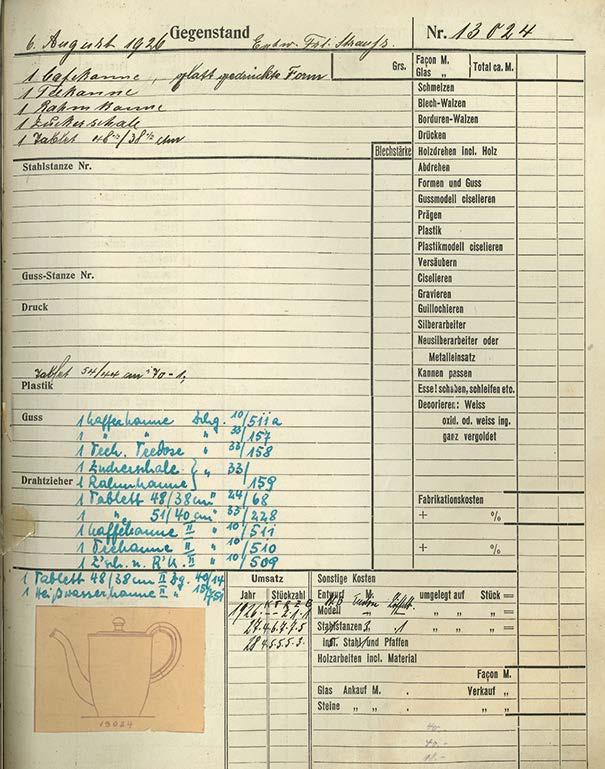 6. August 1926 Gegenstand Entw. Frl. Strauß. Nr. 13024
1 Cafékanne, glatt gedrückte Form
1 Teekanne
1 Rahmkanne
1 Zuckerschale
1 Tablet 48 1/2/38 1/2 cm
Grs. Façon M. Total ca. M.
Glas "
Schmelzen
Blech-Walzen
Borduren-Walzen
Drücken
Blechstärke Holzdrehen incl. Holz
Abdrehen
Formen und Guss
Gussmodell ciselieren
Prägen
Plastik
Plastikmodell ciselieren
Versäubern
Ciselieren
Gravieren
Guillochieren
Silberarbeiter
Neusilberarbeiter oder
Metalleinsatz
Kannen passen
Esse! schaben, schleifen etc.
Decorieren: Weiss
oxid. od. weiss ing.
ganz vergoldet
Fabrikationskosten
+ %
+ %
Stahlstanze Nr.
Guss-Stanze Nr.
Druck
Tablet 54/44 cm
Plastik
Guss 1 Kaffeekanne 10/511a
1 " " " 33/157
1 Tech. Teedose " 33/158
1 Zuckerschale } " 33/
Drahtzieher 1 Rahmkanne } 159
1 Tablett 48/38 cm " 24/68
1 " 51/40 cm " 33/228
1 Kaffeekanne II " 10/511
1 Teekanne II " 10/510
1 Z'sch. u. R'k. II " 10/509
1 Tablett 48/38 cm II Zg. 40/14
1 Heißwasserkanne II "
13024
Umsatz
Jahr Stückzahl
1926
27
28
Sonstige Kosten
Entwurf M. umgelegt auf Stück =
Modell " " " " =
Stahlstanzen " " " =
incl. Stahl und Pfaffen
Holzarbeiten incl. Material
Façon M.
Glas Ankauf M. . Verkauf "
Steine " " . " "